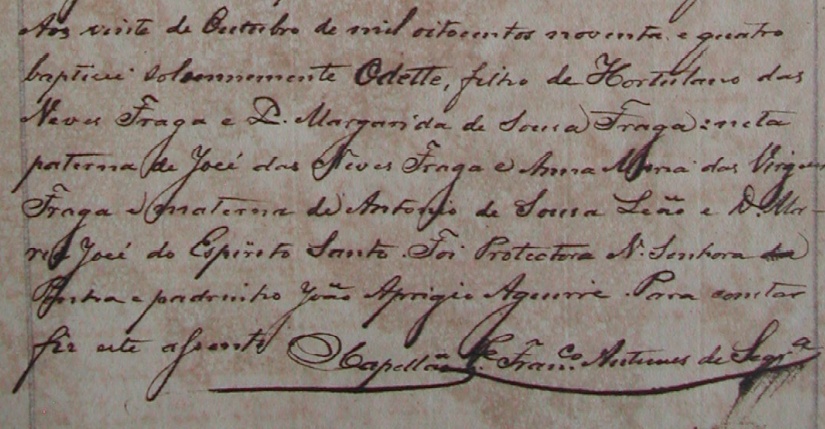 Aos vinte de Outubro de mil oitocentos noventa e quatro
baptizei solemnemente Odette, filho de Hortulano das
Neves Fraga e D. Margarida de Sousa Fraga: neta
paterna de José das Neves Fraga e Anna Maria das Virgens
Fraga e materna de Antonio de Sousa Leão e D. Ma-
ria José do Espirito Santo. Foi Protectora N. Senhora da
Penha e padrinho João Aprigio Aguirre. Para constar
fiz este assento O Capellão Pe. Franco. Antunes de Segra